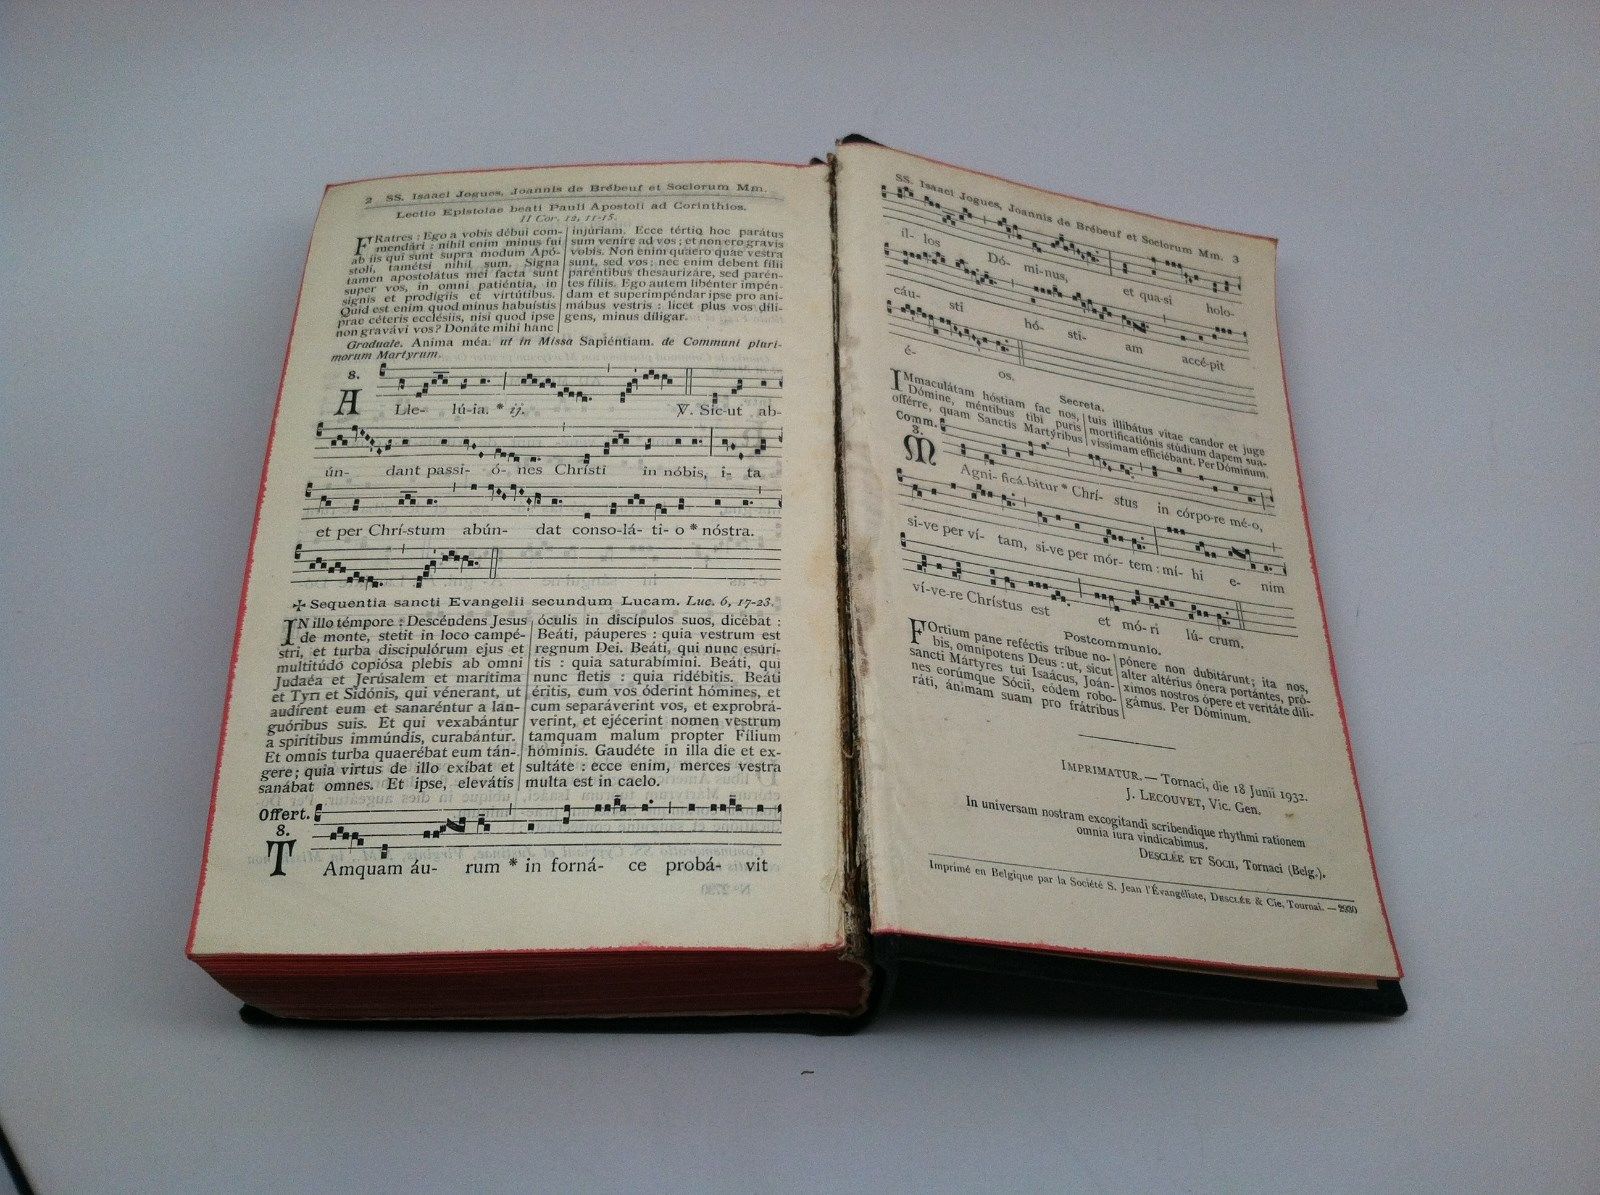 2 SS. Isaaci Jogues, Joannis de Brébeuf et Sociorum Mm.
Lectio Epistolae beati Pauli Apostoli ad Corinthios.
II Cor. 12, 11-15.
FRatres : Ego a vobis débui com-
mendári : nihil enim minus fui
ab iis qui sunt supra modum Apó-
stoli, tamétsi nihil sum. Signa
tamen apostolátus mei facta sunt
super vos, in omni patiéntia, in
signis et prodígiis et virtútibus.
Quid est enim quod minus habuístis
prae céteris ecclésiis, nisi quod ipse
non gravávi vos? Donáte mihi hanc
injúriam. Ecce tértio hoc parátus
sum veníre ad vos ; et non ero gravis
vobis. Non enim quaero quae vestra
sunt, sed vos : nec enim debent fílii
paréntibus thesaurizáre, sed parén-
tes fíliis. Ego autem libénter impén-
dam et superimpéndar ipse pro ani-
mábus vestris : licet plus vos díli-
gens, minus díligar.
Graduale. Anima méa. ut in Missa Sapiéntiam. de Communi pluri-
morum Martyrum.
8.
A Lle- lú-ia. * ij. V. Sic-ut ab-
ún- dant passi- ó- nes Chrísti in nóbis, i- ta
et per Chrí-stum abún- dat conso-lá- ti- o * nóstra.
✠ Sequentia sancti Evangelii secundum Lucam. Luc. 6, 17-23.
IN illo témpore : Descéndens Jesus
de monte, stetit in loco campé-
stri, et turba discipulórum ejus et
multitúdo copiósa plebis ab omni
Judaéa et Jerúsalem et marítima
et Tyri et Sidónis, qui vénerant, ut
audírent eum et sanaréntur a lan-
guóribus suis. Et qui vexabántur
a spirítibus immúndis, curabántur.
Et omnis turba quaerébat eum tán-
gere ; quia virtus de illo exíbat et
sanábat omnes. Et ipse, elevátis
óculis in discípulos suos, dicébat :
Beáti, páuperes : quia vestrum est
regnum Dei. Beáti, qui nunc esurí-
tis : quia saturabímini. Beáti, qui
nunc fletis : quia ridébitis. Beáti
éritis, cum vos óderint hómines, et
cum separáverint vos, et exprobrá-
verint, et ejécerint nomen vestrum
tamquam malum propter Fílium
hóminis. Gaudéte in illa die et ex-
sultáte : ecce enim, merces vestra
multa est in caelo.
Offert.
8.
T Amquam áu- rum * in forná- ce probá- vit
SS. Isaaci Jogues, Joannis de Brébeuf et Sociorum Mm. 3
íl- los Dó- mi-nus, et qua-si holo-
cáu- sti hó- sti- am accé-pit
é- os.
Secreta.
IMmaculátam hóstiam fac nos,
Dómine, méntibus tibi puris
offérre, quam Sanctis Martýribus
tuis illibátus vitae candor et juge
mortificatiónis stúdium dapem sua-
víssimam efficiébant. Per Dóminum.
Comm.
3.
M Agni- ficá-bitur * Chrí- stus in córpo-re mé-o,
si-ve per ví- tam, si-ve per mór- tem : mí- hi e- nim
ví-ve-re Chrístus est et mó-ri lú- crum.
Postcommunio.
FOrtium pane reféctis tríbue no-
bis, omnípotens Deus : ut, sicut
sancti Mártyres tui Isaácus, Joán-
nes eorúmque Sócii, eódem robo-
ráti, ánimam suam pro frátribus
pónere non dubitárunt ; ita nos,
alter altérius ónera portántes, pró-
ximos nostros ópere et veritáte dili-
gámus. Per Dóminum.
IMPRIMATUR. — Tornaci, die 18 Junii 1932.
J. LECOUVET, Vic. Gen.
In universam nostram excogitandi scribendique rhythmi rationem
omnia iura vindicabimus.
DESCLÉE ET SOCII, Tornaci (Belg.).
Imprimé en Belgique par la Société S. Jean l'Évangéliste, DESCLÉE & Cie, Tournai. — 2930